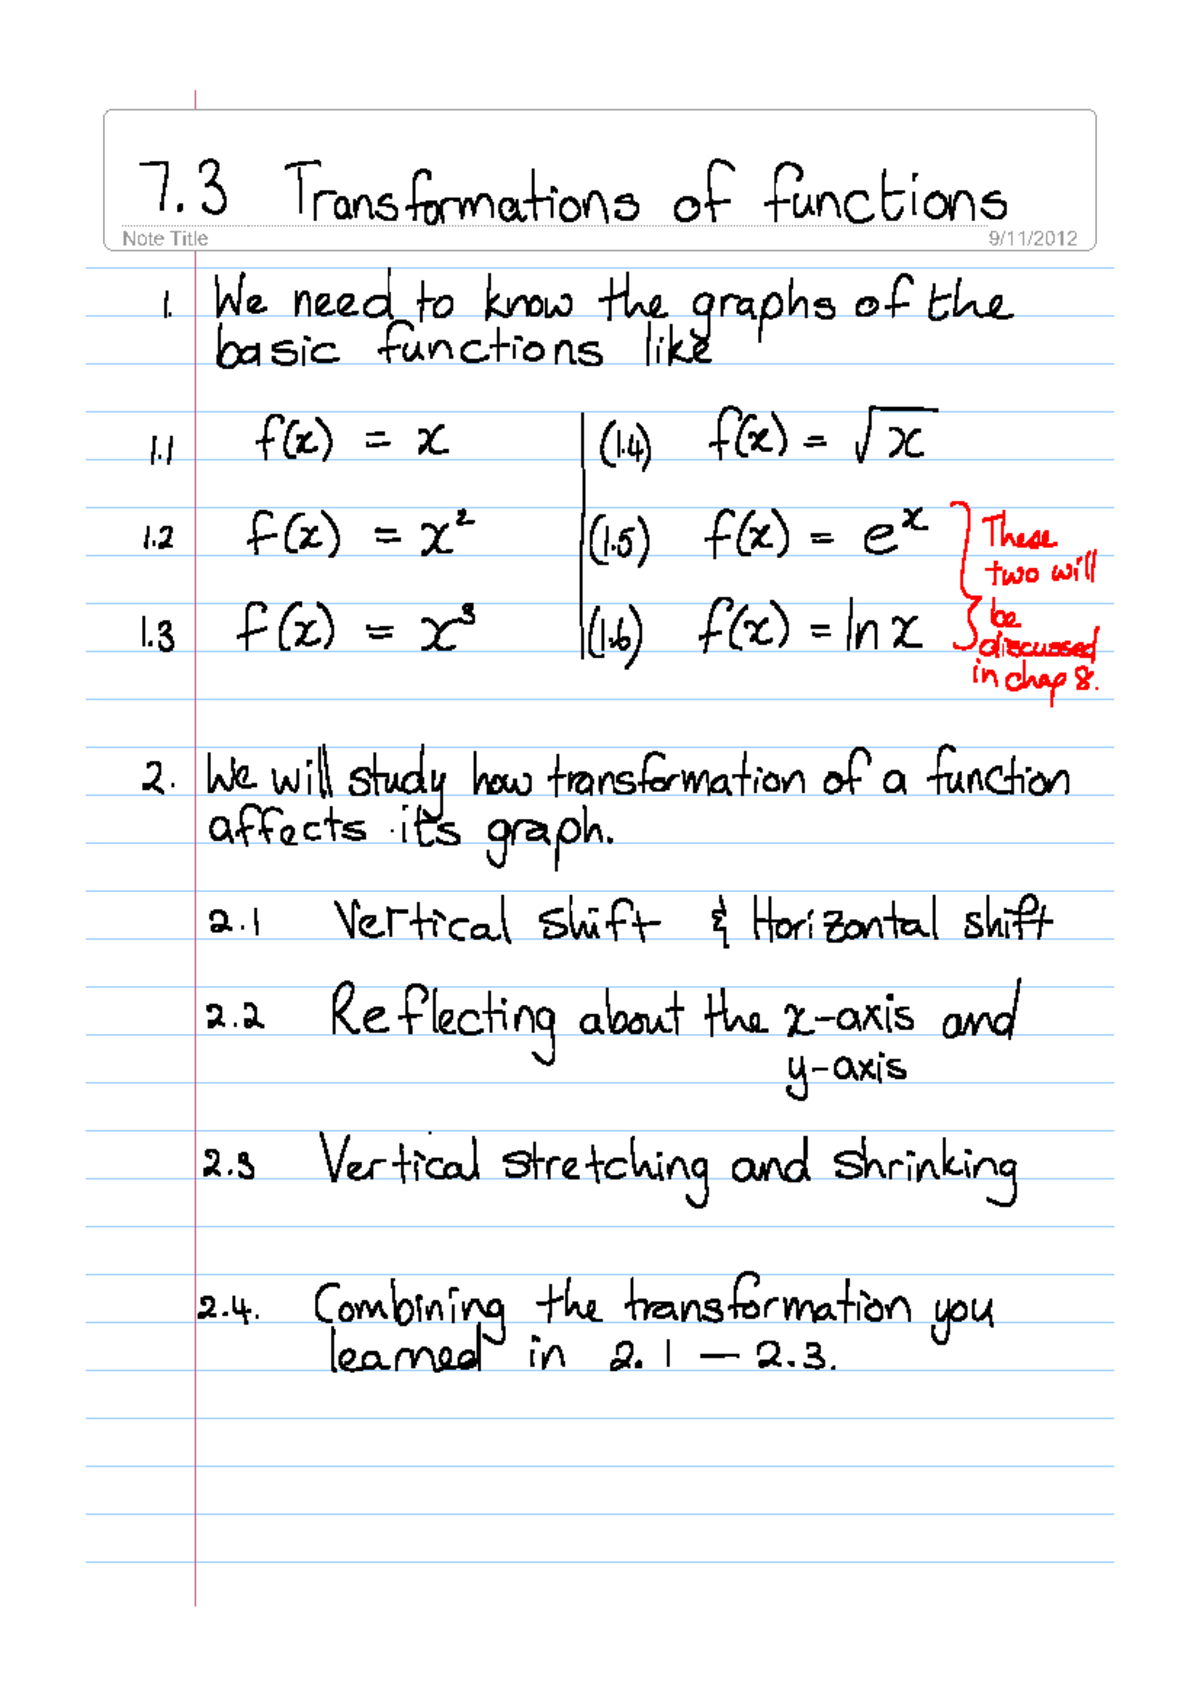 7.3 Transformations of functions
Note Title
9/11/2012
1. We need to know the graphs of the
basic functions like
1.1 f(x) = x
(1.4) f(x) = √x
1.2 f(x) = x²
(1.5) f(x) = eˣ
1.3 f(x) = x³
(1.6) f(x) = ln x
These
two will
be
discussed
in chap 8.
2. We will study how transformation of a function
affects it's graph.
2.1 Vertical shift & Horizontal shift
2.2 Reflecting about the x-axis and
y-axis
2.3 Vertical stretching and shrinking
2.4. Combining the transformation you
learned in 2.1 — 2.3.